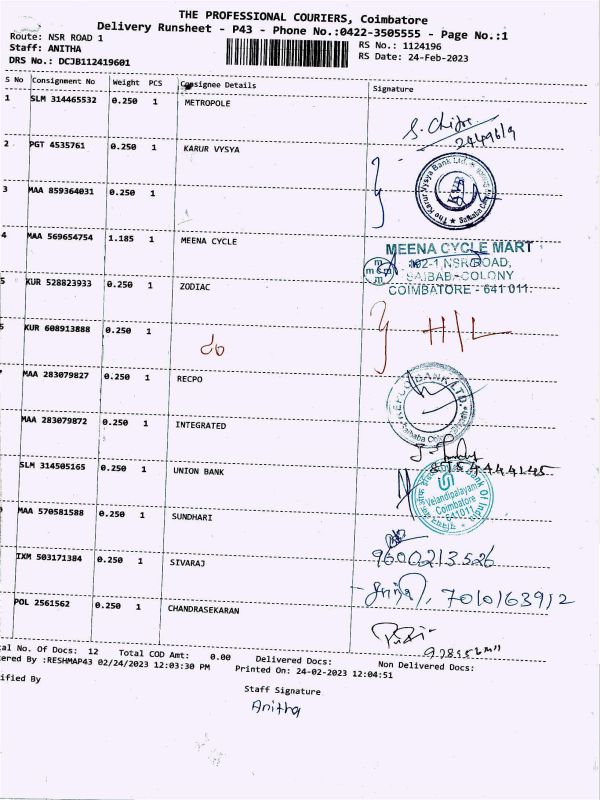 THE PROFESSIONAL COURIERS, Coimbatore
Delivery Runsheet - P43 - Phone No.:0422-3505555 - Page No.:1
Route: NSR ROAD 1
RS No.: 1124196
Staff: ANITHA
RS Date: 24-Feb-2023
DRS No.: DCJB112419601
S No Consignment No Weight PCS Consignee Details Signature
1 SLM 314465532 0.250 1 METROPOLE
2 PGT 4535761 0.250 1 KARUR VYSYA
The Karur Vysya Bank Ltd.
3 MAA 859364031 0.250 1
4 MAA 569654754 1.185 1 MEENA CYCLE
MEENA CYCLE MART
302-1 NSR ROAD,
SAIBABA COLONY
COIMBATORE - 641 011.
5 KUR 528823933 0.250 1 ZODIAC
H/L
6 KUR 608913888 0.250 1
MAA 283079827 0.250 1 RECPO
REPCO BANK LTD.
MAA 283079872 0.250 1 INTEGRATED
8754444145
SLM 314505165 0.250 1 UNION BANK
Union Bank Of India
Velandipalayam
Coimbatore
641011
MAA 570581588 0.250 1 SUNDHARI
9600213526
IXM 503171384 0.250 1 SIVARAJ
7010163912
POL 2561562 0.250 1 CHANDRASEKARAN
al No. Of Docs: 12 Total COD Amt: 0.00 Delivered Docs: Non Delivered Docs:
ered By :RESHMAP43 02/24/2023 12:03:30 PM Printed On: 24-02-2023 12:04:51
ified By
Staff Signature
Anitha